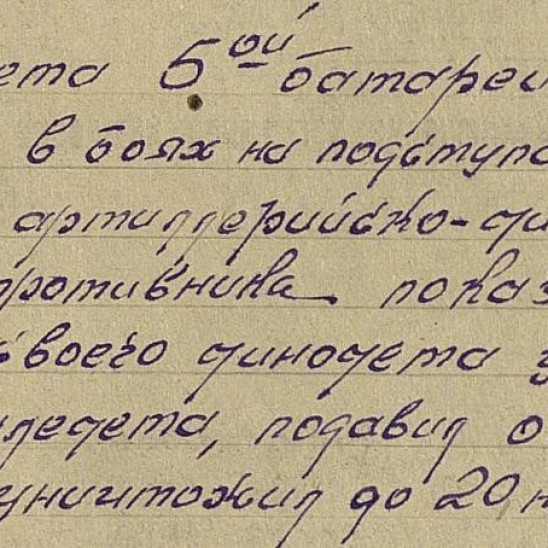 ета 5ой батареи
в боях на подступа
артиллерийско-ми
противника показ
своего миномета у
лемета, подавил о
уничтожил до 20 н